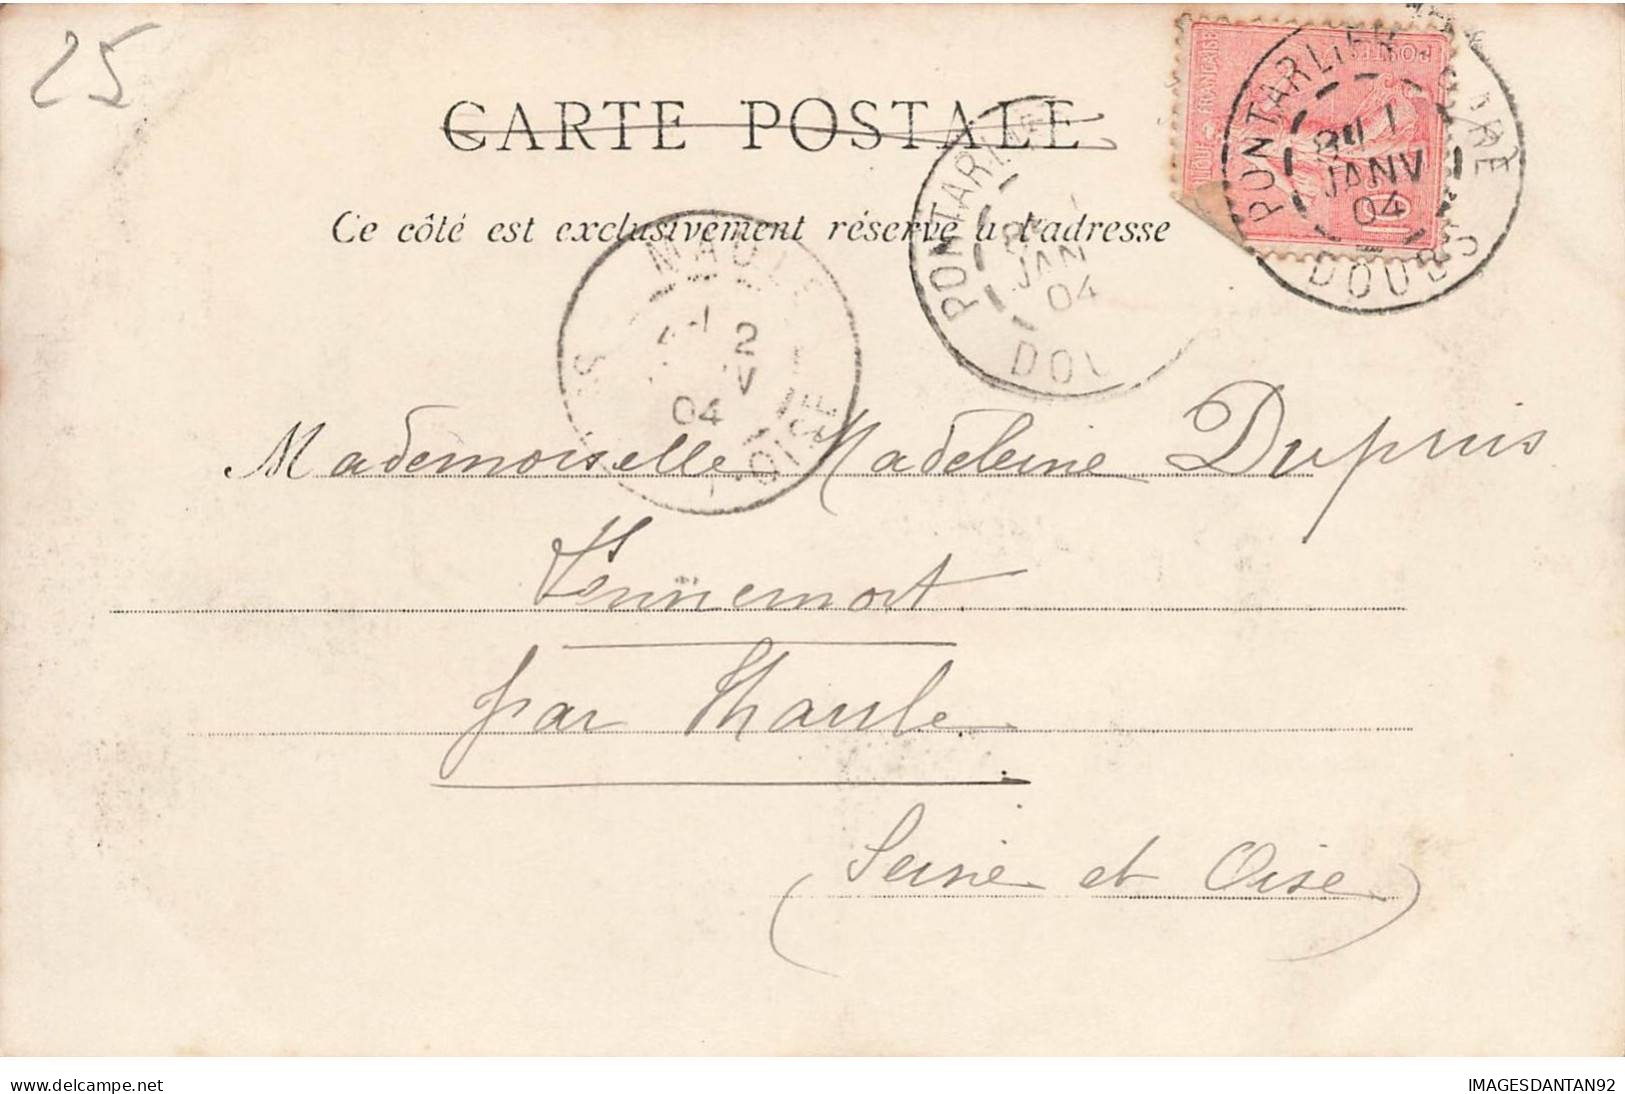 25
CARTE POSTALE
Ce côté est exclusivement réservé à l'adresse
POSTES
FRANÇAISE
10
PONTARLIER GARE
JANV
04
DOUBS
PONTARLIE
JAN
04
DOU
MAULE
2
V
04
OISE
Mademoiselle Madeleine Dupuis
Hennemont
par Maule
(Seine et Oise)
www.delcampe.net
IMAGESDANTAN92